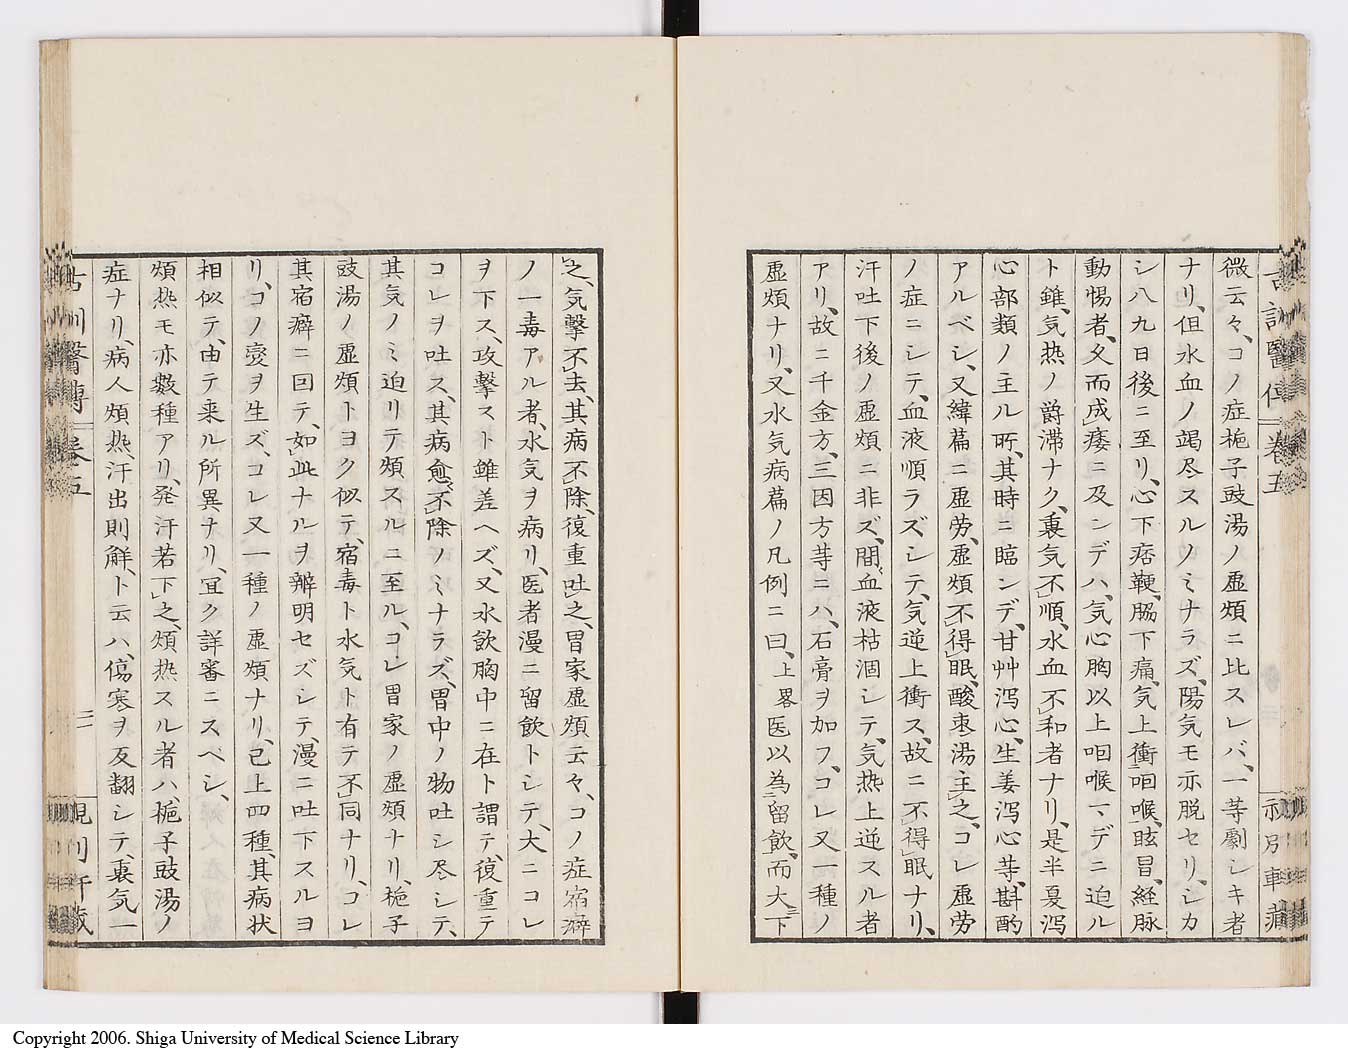 微云々、コノ症梔子豉湯ノ虚煩ニ比スレバ、一等劇シキ者
ナリ、但水血ノ竭尽スルノミナラズ、陽気モ亦脱セリ、シカ
シ八九日後ニ至リ、心下痞鞕、脇下痛、気上衝咽喉、眩冒、経脉
動惕者、久而成痿ニ及ンデハ、気心胸以上咽喉マデニ迫ル
ト雖、気熱ノ爵滞ナク、裏気不順、水血不和者ナリ、是半夏泻
心部類ノ主ル所、其時ニ臨ンデ、甘艸泻心、生姜泻心等、斟酌
アルベシ、又緯篇ニ虚労、虚煩不得眠、酸枣湯主之、コレ虚労
ノ症ニシテ、血液順ラズシテ、気逆上衝ス、故ニ不得眠ナリ、
汗吐下後ノ虚煩ニ非ズ、間血液枯涸シテ、気熱上逆スル者
アリ、故ニ千金方、三因方等ニハ、石膏ヲ加フ、コレ又一種ノ
虚煩ナリ、又水気病篇ノ凡例ニ曰、上畧医以為留飲、而大下
之、気撃不去、其病不除、復重吐之、胃家虚煩云々、コノ症宿癖
ノ一毒アル者、水気ヲ病リ、医者漫ニ留飲トシテ、大ニコレ
ヲ下ス、攻撃スト雖差ヘズ、又水飲胸中ニ在ト謂テ、復重テ
コレヲ吐ス、其病愈不除ノミナラズ、胃中ノ物吐シ尽シテ、
其気ノミ迫リテ煩スルニ至ル、コレ胃家ノ虚煩ナリ、梔子
豉湯ノ虚煩トヨク似テ、宿毒ト水気ト有テ不同ナリ、コレ
其宿癖ニ回テ、如此ナルヲ辨明セズシテ、漫ニ吐下スルヨ
リ、コノ変ヲ生ズ、コレ又一種ノ虚煩ナリ、已上四種、其病状
相似テ、由テ来ル所異ナリ、宜ク詳審ニスベシ、
煩热モ亦数種アリ、発汗若下之、煩热スル者ハ梔子豉湯ノ
症ナリ、病人煩热、汗出則解、ト云ハ、傷寒ヲ反翻シテ、裏気一
巻五
三
Copyright 2006. Shiga University of Medical Science Library